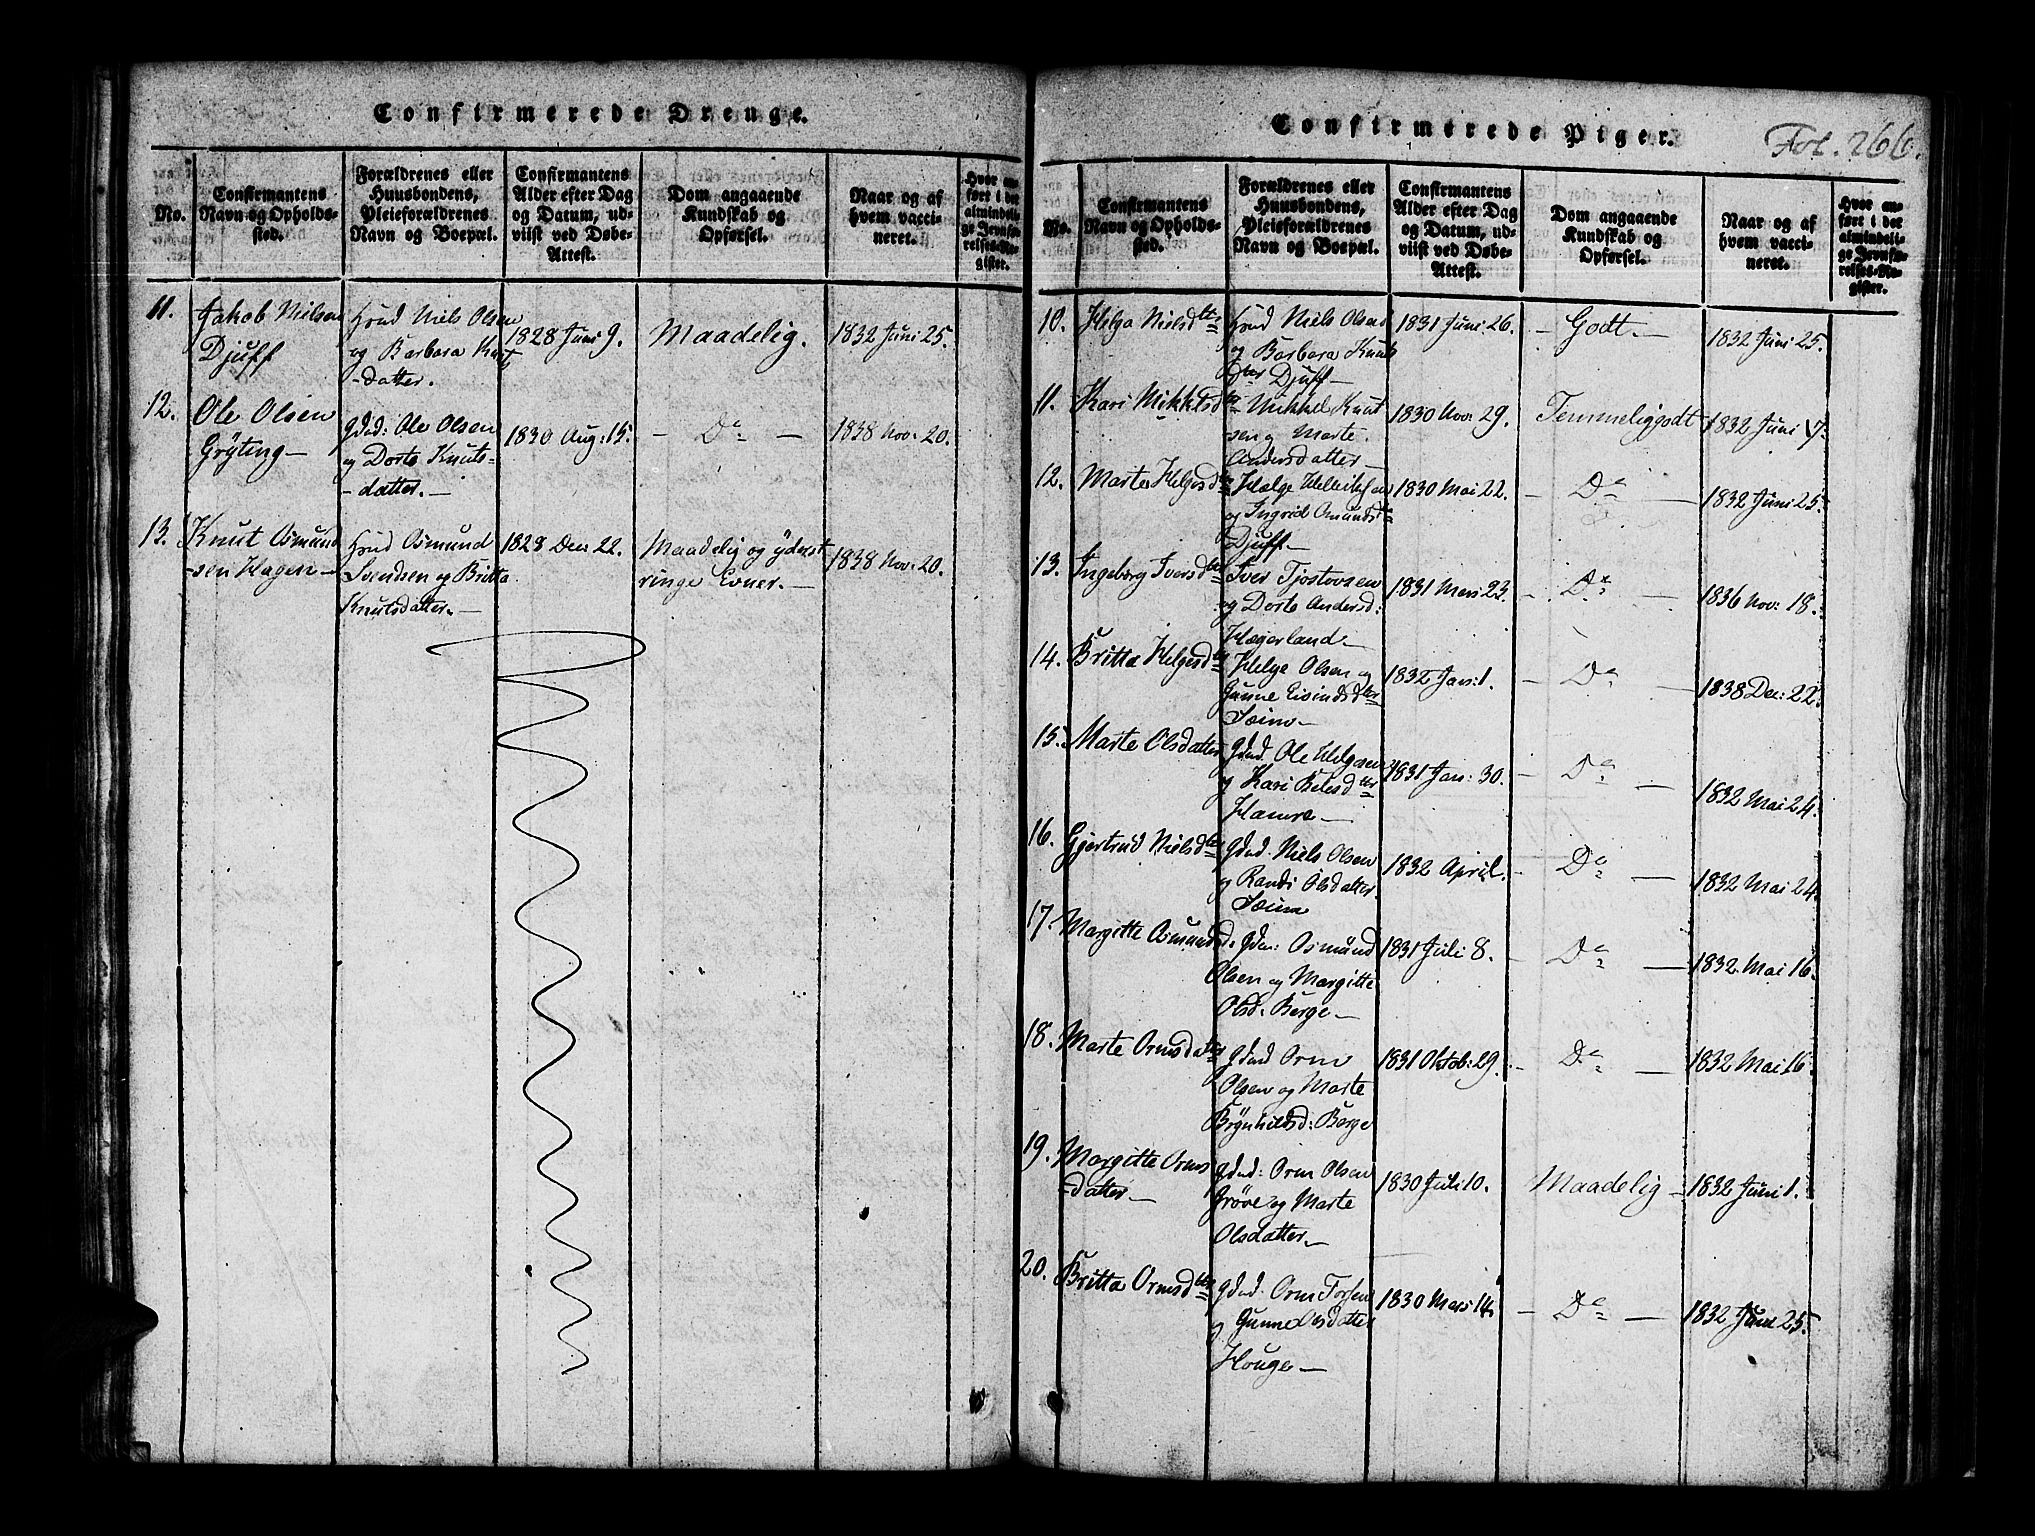 Confirmerede Drenge.
No.
Confirmantens Navn og Opholdssted.
Forældrenes eller Huusbondens, Pleieforældrenes Navn og Boepæl.
Confirmantens Alder efter Dag og Datum, udviist ved Døbe-Attest.
Dom angaaende Kundskab og Opførsel.
Naar og af hvem vaccineret.
Hvor anført i det almindelige Jevnførelses-Register.
11.
Jakob Nielsen
Djuff
Hmd Niels Olsen
og Barbara Knuts
-datter.
1828 Juni 9.
Maadelig.
1832 Juni 25.
12.
Ole Olsen
Gryting—
Gdmd: Ole Olsen
og Dorte Knuts-
-datter.—
1830 Aug: 15.
— Do —
1838 Nov: 20.
13.
Knut Osmund
-sen Hagen—
Hmd Osmund
Svendsen og Britta
Knutsdatter.—
1828 Dec: 22.
Maadelig og yderst
ringe Evner.—
1838 Nov: 20.
Confirmerede Piger.
Fol. 266.
No.
Confirmantens Navn og Opholdssted.
Forældrenes eller Huusbondens, Pleieforældrenes Navn og Boepæl.
Confirmantens Alder efter Dag og Datum, udviist ved Døbe-Attest.
Dom angaaende Kundskab og Opførsel.
Naar og af hvem vaccineret.
Hvor anført i det almindelige Jevnførelses-Register.
10.
Helga Nielsdtr
Hmd Niels Olsen
og Barbara Knuts
Dtter Djuff—
1831 Juni 26.
— Godt.—
1832 Juni 25.
11.
Kari Mikkelsdtr
Mikkel Knut
sen og Marte
Andersdatter—
1830 Nov: 29.
Temmelig godt
1832 Juni 17.
12.
Marte Helgesdtr
Helge
og Ingrid Omundsdtr
Djuff—
1830 Mai 22.
— Do —
1832 Juni 25.
13.
Ingeborg Iversdtr
Iver Tjostovsen
og Dorte Andersd:
Hægerland—
1831 Mars 23.
— Do —
1836 Nov: 18.
14.
Britta Helgesdtr
Helge Olsen og
Gunne Eivindsdtter
1832 Jan: 1.
— Do —
1838 Dec: 22.
15.
Marte Olsdatter
Gdmd. Ole Helgesen
og Kari
Hamre—
1831 Jan: 30.
— Do —
1832 Mai 24.
16.
Gjertrud Nielsdtr
Gdmd. Niels Olsen
og Randi Olsdatter
1832 April.
— Do —
1832 Mai 24.
17.
Margitte Osmundsd.
Gdm: Osmund
Olsen og Margitte
Olsd: Berge—
1831 Juli 8.
— Do —
1832 Mai 16.
18.
Marte Ormsdatter
Gdmd Orm
Olsen og Marte
Brynhildsd: Berge
1831 Oktob: 29.
— Do —
1832 Mai 16.
19.
Margitte Orms
-datter—
Gdmd: Orm Olsen
og Marte
Olsdatter.—
1830 Juli 10.
Maadelig —
1832 Juni 1.
20.
Britta Ormsdtr
Gdmd. Orm
og Gunne Olsdatter
Houge—
1830 Mars 14.
— Do —
1832 Juni 25.